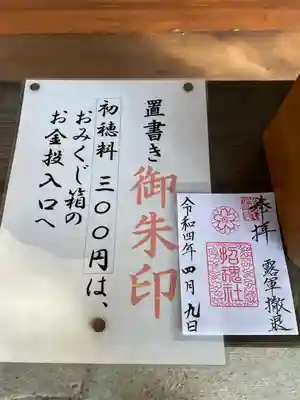 置書き
御朱印
初穂料 三〇〇円は、
おみくじ箱の
お金投入口へ
奉拝
露軍撤退
招魂社
令和四年四月九日